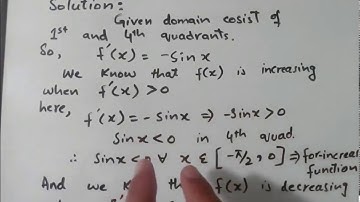 Solution:
Given domain cosist of
1st and 4th quadrants.
So, f'(x) = -Sin x
We know that f(x) is increasing
when f'(x) > 0
here, f'(x) = - Sin x ⇒ -Sin x > 0
Sin x < 0 in 4th quad.
∴ Sin x < 0 ∀ x ε [-π/2, 0] ⇒ for increas
function
And we that f(x) is decreasing